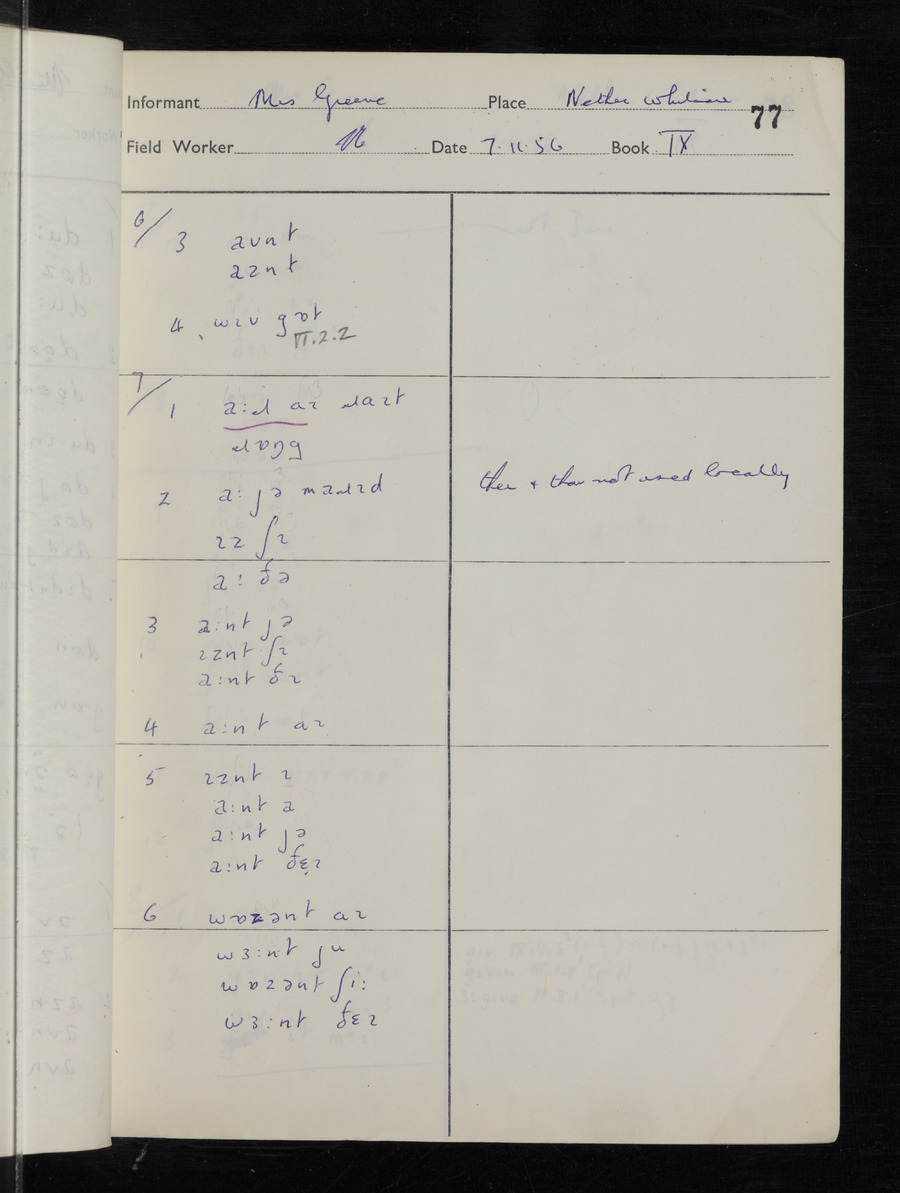 Informant Mrs Greene Place Nether Whitacre 77
Field Worker Date 7.11.56 Book IX
6/ 3 avnt
aznt
4 wɪv gɒt
VI.2.2
7/ 1
2 a: jə
ɪz ʃɪ
thee & thou not used locally
a: ðə
3 a:nt jə
ɪznt ʃɪ
a:nt ðɪ
4 a:nt aɪ
5 ɪznt ɪ
a:nt a
a:nt jə
a:nt ðɛɪ
6 wɒzənt aɪ
wɜ:nt ju
wɒzənt ʃi:
wɜ:nt ðɛɪ